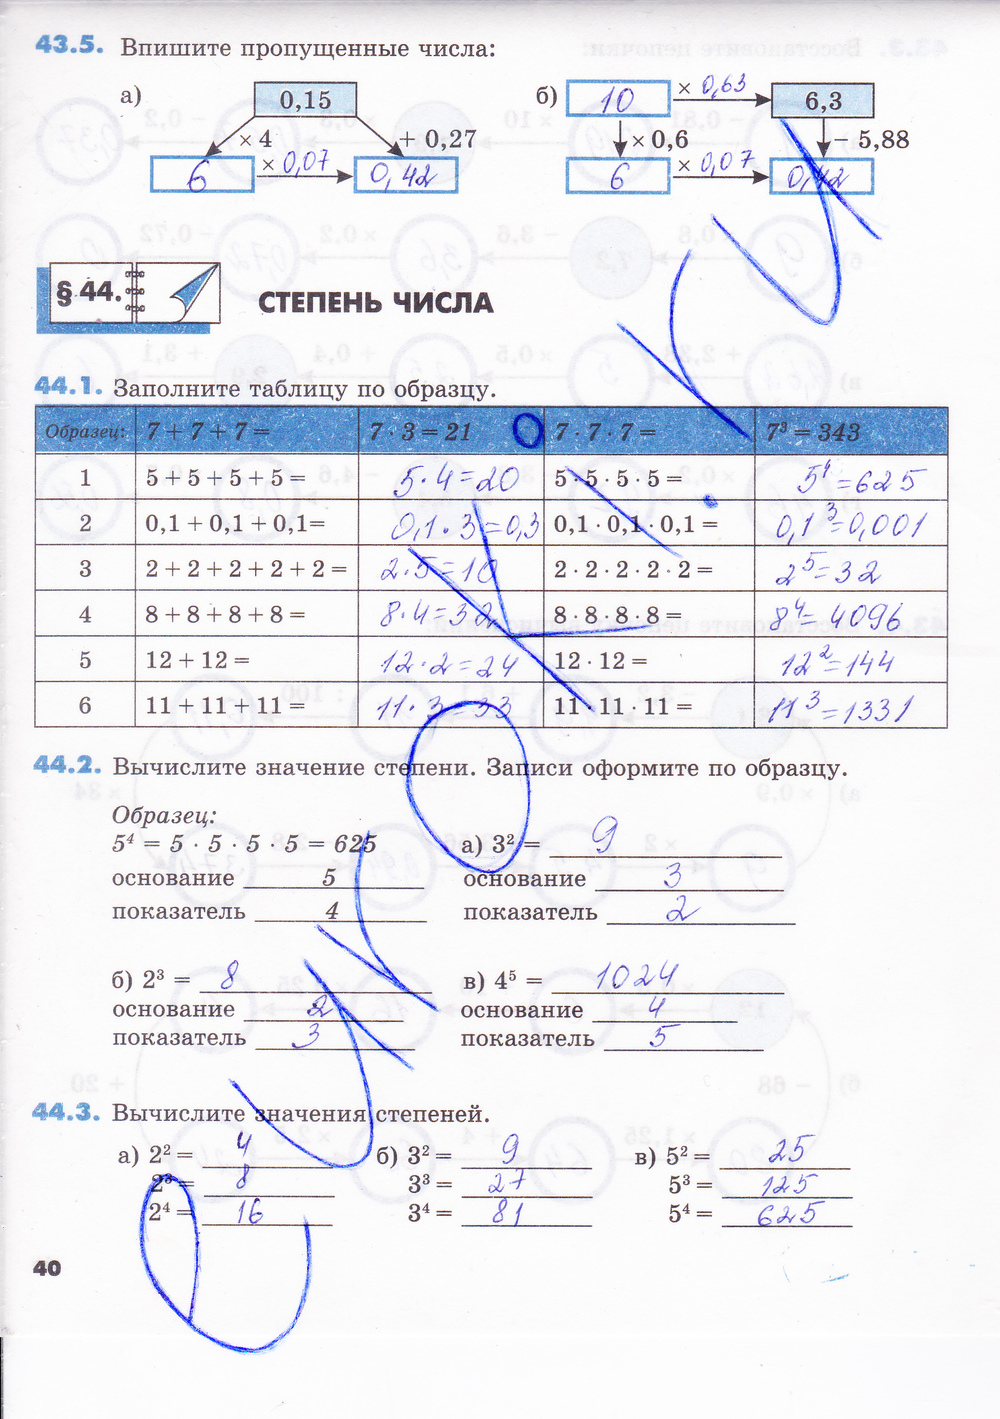 43.5. Впишите пропущенные числа:
а) 0,15
× 4
+ 0,27
6
× 0,07
0,42
б) 10
× 0,63
6,3
× 0,6
− 5,88
6
× 0,07
0,42
§ 44.
СТЕПЕНЬ ЧИСЛА
44.1. Заполните таблицу по образцу.
Образец: 7 + 7 + 7 = 7 · 3 = 21 7 · 7 · 7 = 7³ = 343
1 5 + 5 + 5 + 5 = 5·4=20 5 · 5 · 5 · 5 = 5⁴=625
2 0,1 + 0,1 + 0,1= 0,1·3=0,3 0,1 · 0,1 · 0,1 = 0,1³=0,001
3 2 + 2 + 2 + 2 + 2 = 2·5=10 2 · 2 · 2 · 2 · 2 = 2⁵=32
4 8 + 8 + 8 + 8 = 8·4=32 8 · 8 · 8 · 8 = 8⁴=4096
5 12 + 12 = 12·2=24 12 · 12 = 12²=144
6 11 + 11 + 11 = 11·3=33 11 · 11 · 11 = 11³=1331
44.2. Вычислите значение степени. Записи оформите по образцу.
Образец:
5⁴ = 5 · 5 · 5 · 5 = 625 а) 3² = 9
основание 5 основание 3
показатель 4 показатель 2
б) 2³ = 8 в) 4⁵ = 1024
основание 2 основание 4
показатель 3 показатель 5
44.3. Вычислите значения степеней.
а) 2² = 4 б) 3² = 9 в) 5² = 25
2³ = 8 3³ = 27 5³ = 125
2⁴ = 16 3⁴ = 81 5⁴ = 625
40